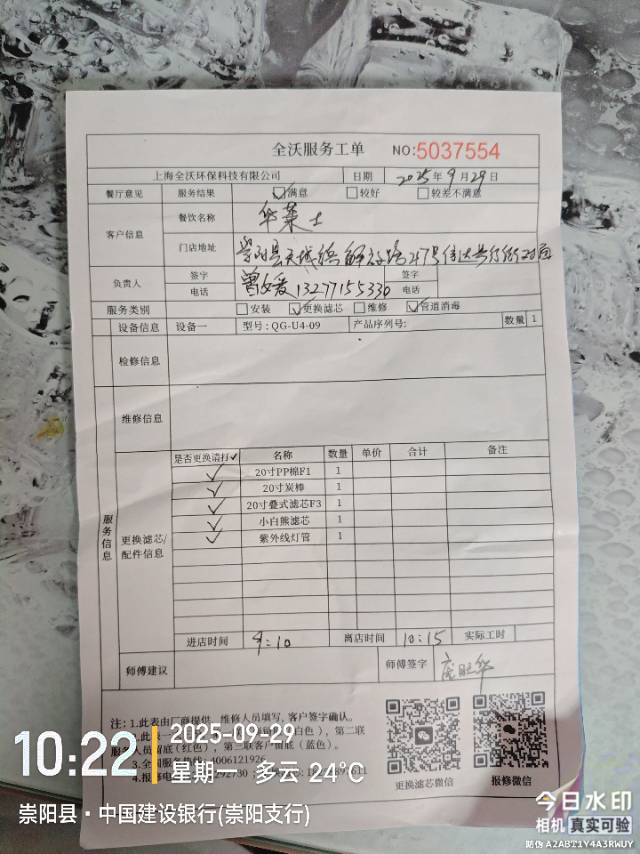 全沃服务工单 NO:5037554
上海全沃环保科技有限公司 日期 2025年9月29日
餐厅意见 服务结果 ☑满意 □较好 □较差不满意
客户信息 餐饮名称 华莱士
门店地址 崇阳县天城镇解放路47号信达步行街
负责人 签字 签字
电话 13277155330 电话
服务类别 □安装 ☑更换滤芯 □维修 ☑管道消毒
设备信息 设备一 型号:QG-U4-09 产品序列号: 数量 1
检修信息
维修信息
服务信息
更换滤芯/配件信息
是否更换请打✓ 名称 数量 单价 合计 备注
✓ 20寸PP棉F1 1
✓ 20寸炭棒 1
✓ 20寸叠式滤芯F3 1
✓ 小白熊滤芯 1
✓ 紫外线灯管 1
进店时间 9:10 离店时间 10:15 实际工时
师傅建议 师傅签字
注:1.此表由厂商提供,维修人员填写,客户签字确认。
更换滤芯微信 报修微信
10:22
2025-09-29
星期一 多云 24℃
崇阳县·中国建设银行(崇阳支行)
今日水印
相机 真实可验
防伪 A2ABT1Y4A3RWUY